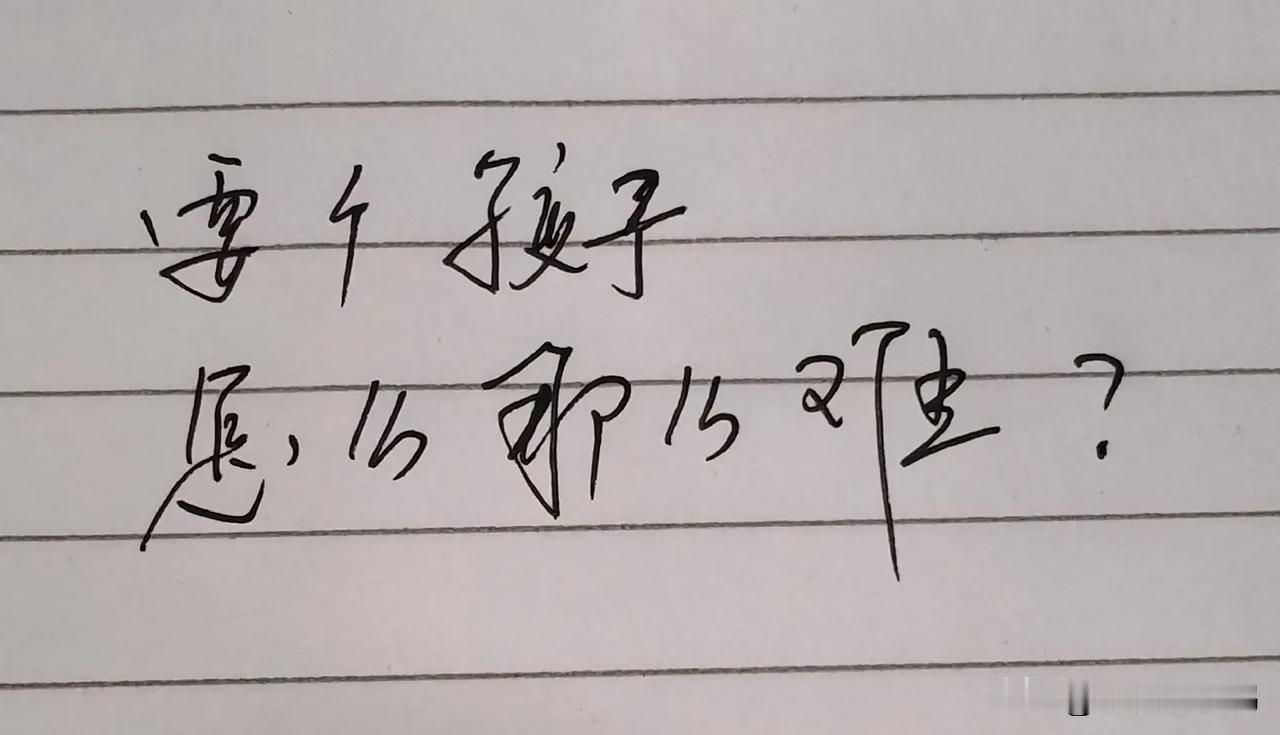 要个孩子
怎么那么难？